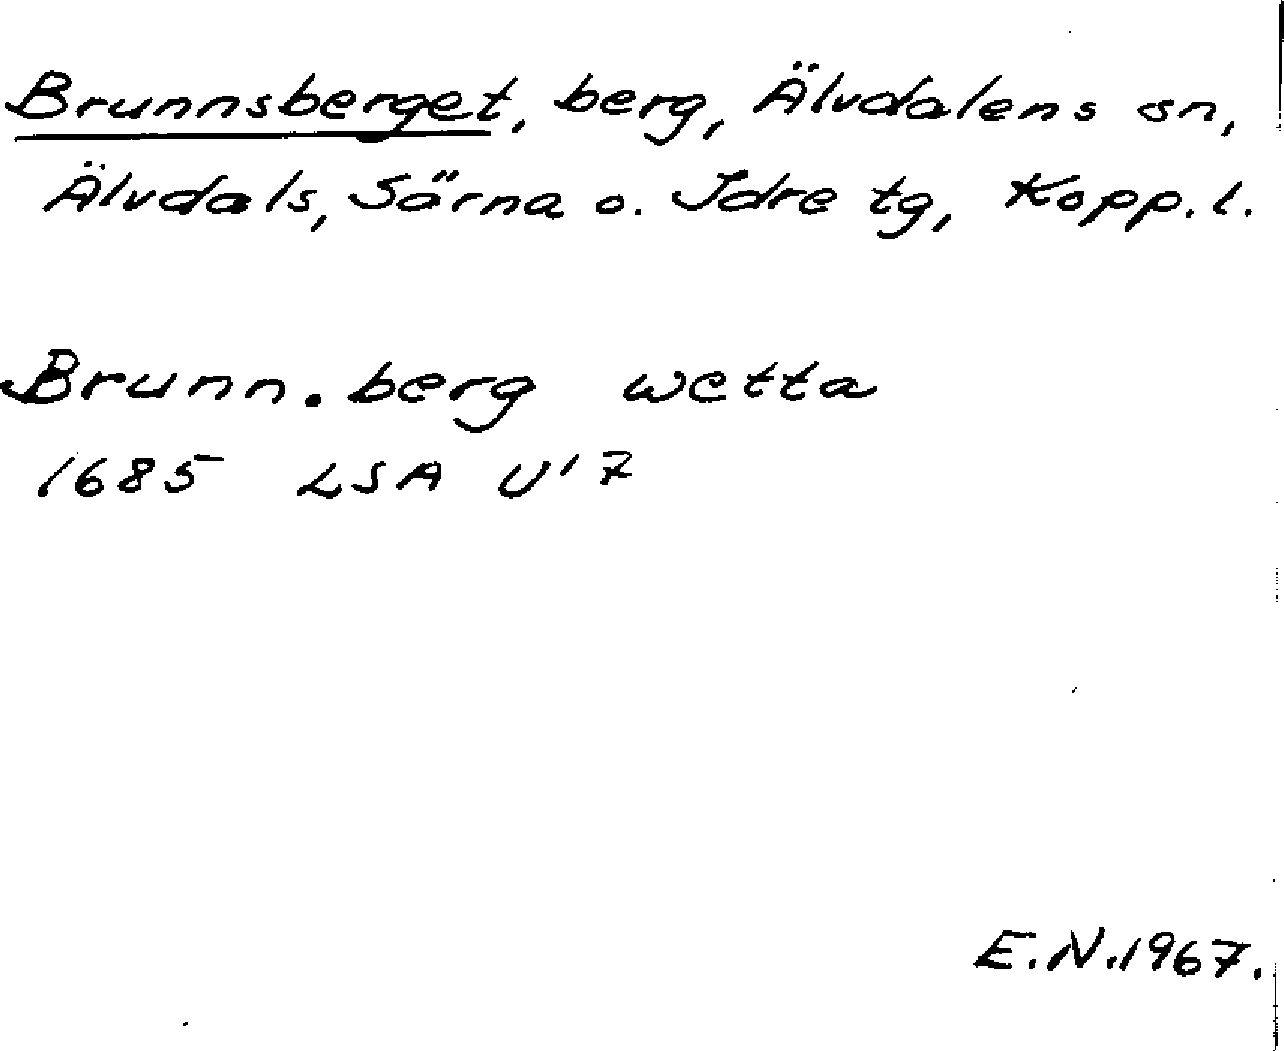 Brunnsberget, berg, Älvdalens sn,
Älvdals, Särna o. Idre tg, Kopp. l.
Brunn. berg wetta
1685 LSA U'7
E.N.1967.